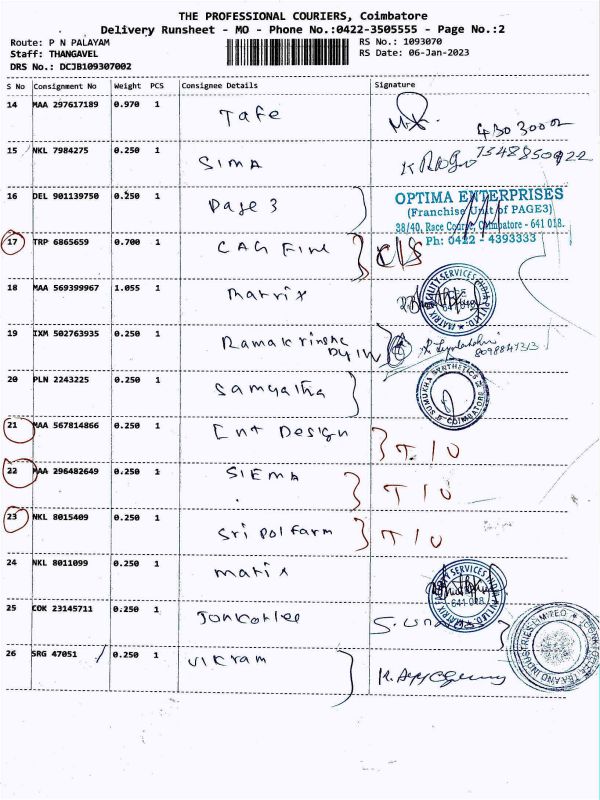 THE PROFESSIONAL COURIERS, Coimbatore
Delivery Runsheet - MO - Phone No.:0422-3505555 - Page No.:2
Route: P N PALAYAM RS No.: 1093070
Staff: THANGAVEL RS Date: 06-Jan-2023
DRS No.: DCJB109307002
S No Consignment No Weight PCS Consignee Details Signature
14 MAA 297617189 0.970 1 Tafe
15 NKL 7984275 0.250 1 SIMA
16 DEL 901139750 0.250 1 Page 3
OPTIMA ENTERPRISES
(Franchise Unit of PAGE3)
38/40, Race Course, Coimbatore - 641 018.
Ph: 0422 - 4393333
17 TRP 6865659 0.700 1 CAG Fine C/S
18 MAA 569399967 1.055 1 Matrix
19 IXM 502763935 0.250 1 Ramakrishna
8098847313
20 PLN 2243225 0.250 1 Samyatha
SUMUKHA SYNTHETICS
COIMBATORE
21 MAA 567814866 0.250 1 Ent Design T I U
22 MAA 296482649 0.250 1 SIEMA T I U
23 NKL 8015409 0.250 1 Sri Polfarm T I U
24 NKL 8011099 0.250 1 Matix
641 018
25 COK 23145711 0.250 1
26 SRG 47051 0.250 1 Vikram